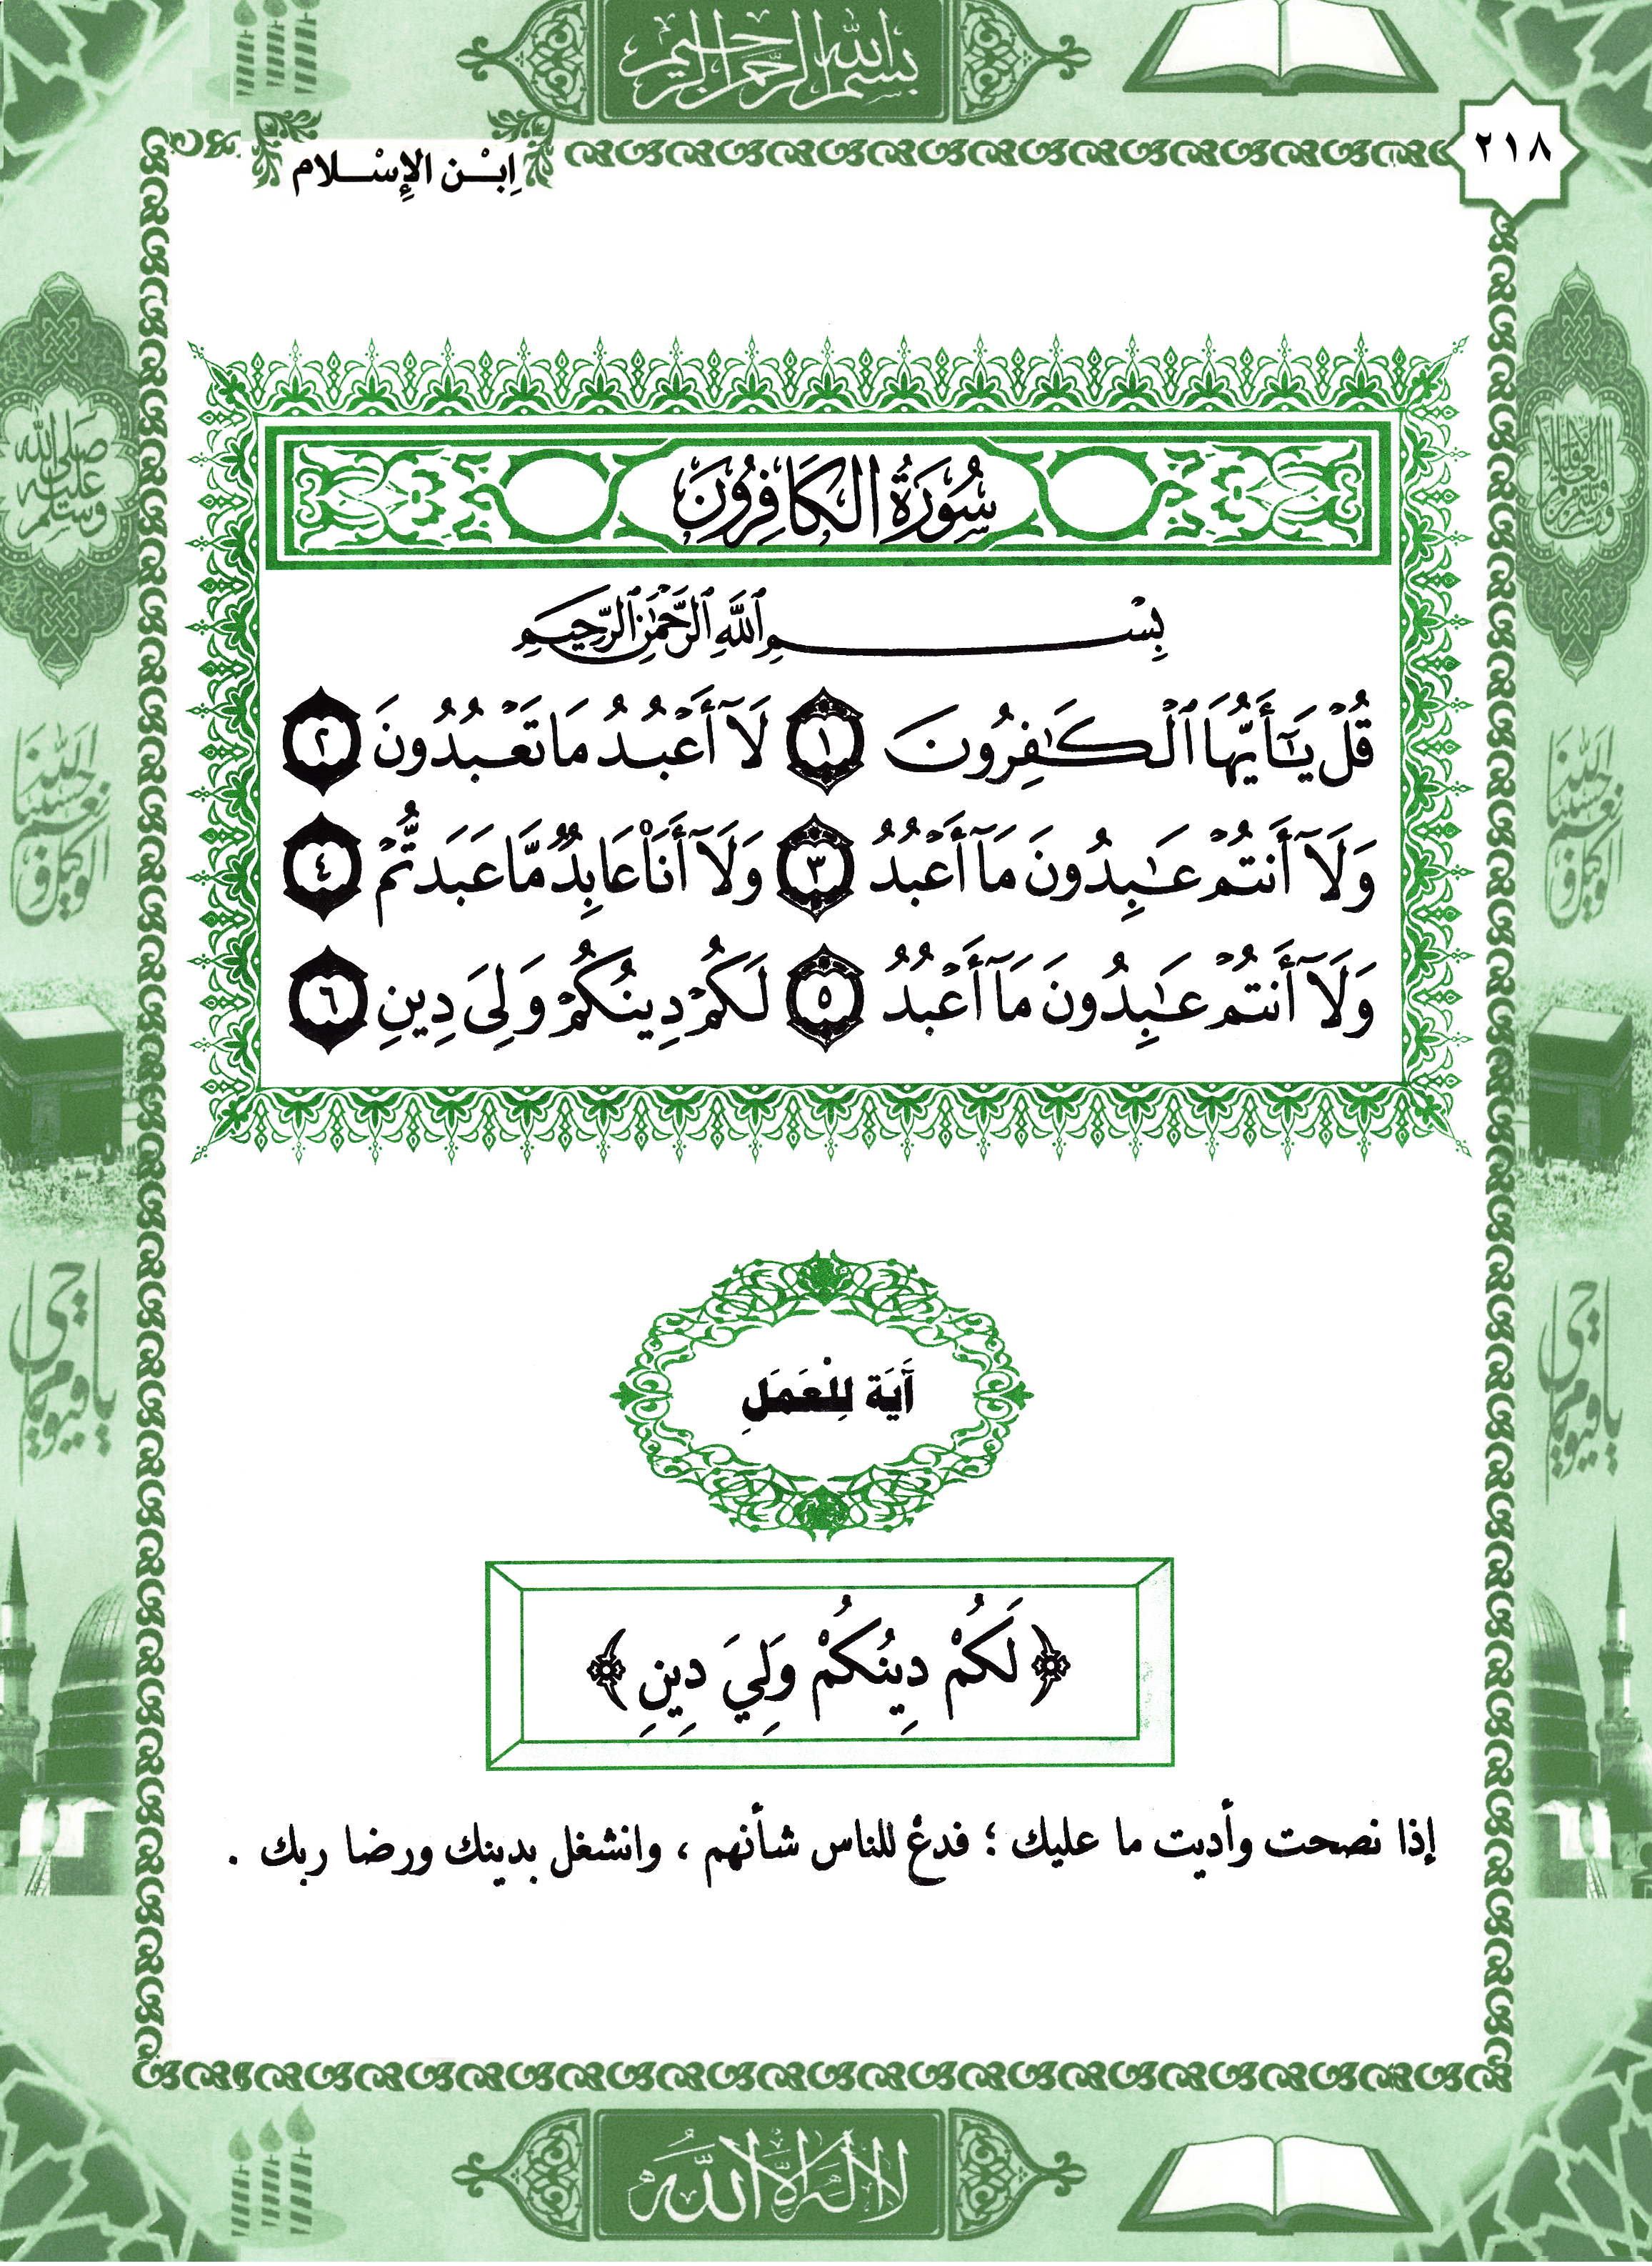 بسم الله الرحمن الرحيم
٢١٨
اِبْـن الإِسْـلام
سُورَةُ الكَافِرُونَ
بِسْمِ ٱللَّهِ ٱلرَّحْمَٰنِ ٱلرَّحِيمِ
قُلْ يَٰٓأَيُّهَا ٱلْكَٰفِرُونَ ١ لَآ أَعْبُدُ مَا تَعْبُدُونَ ٢
وَلَآ أَنتُمْ عَٰبِدُونَ مَآ أَعْبُدُ ٣ وَلَآ أَنَا۠ عَابِدٌ مَّا عَبَدتُّمْ ٤
وَلَآ أَنتُمْ عَٰبِدُونَ مَآ أَعْبُدُ ٥ لَكُمْ دِينُكُمْ وَلِىَ دِينِ ٦
آيَة لِلْعَمَلِ
﴿لَكُمْ دِينُكُمْ وَلِيَ دِينِ﴾
إذا نصحت وأديت ما عليك ؛ فدعْ للناس شأنهم ، وانشغل بدينك ورضا ربك .
صلى الله عليه وسلم
حسبنا الله ونعم الوكيل
حسبنا الله ونعم الوكيل
يا حي يا قيوم
يا حي يا قيوم
لا إله إلا الله